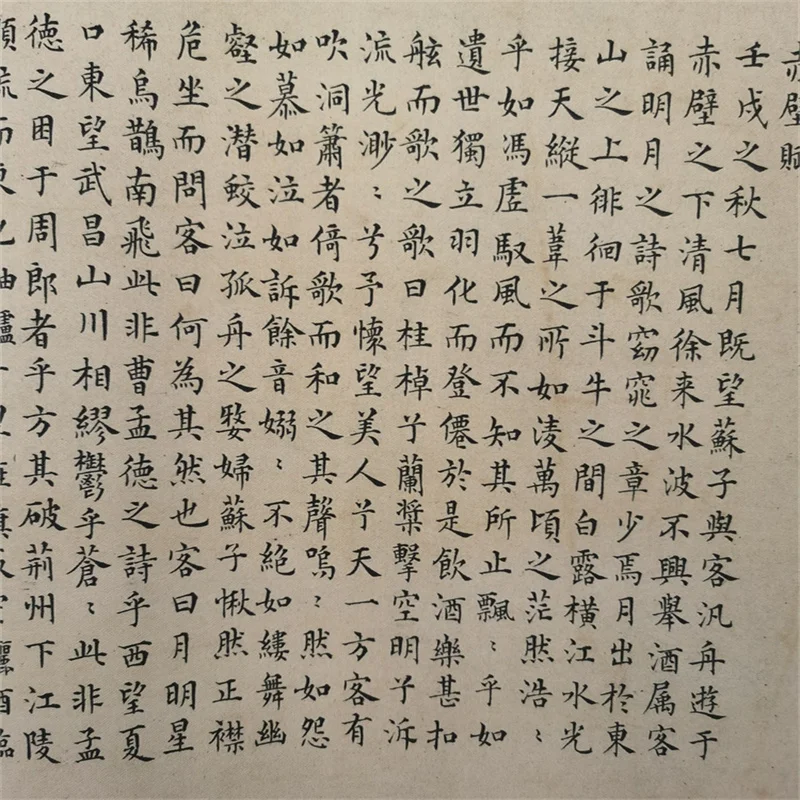 赤壁賦
壬戌之秋七月既望蘇子與客汎舟遊于
赤壁之下清風徐来水波不興舉酒属客
誦明月之詩歌窈窕之章少焉月出於東
山之上徘徊于斗牛之間白露橫江水光
接天縱一葦之所如淩萬頃之茫然浩〻
乎如馮虛馭風而不知其所止飄〻乎如
遺世獨立羽化而登僊於是飲酒樂甚扣
舷而歌之歌曰桂棹兮蘭槳擊空明兮泝
流光渺〻兮予懷望美人兮天一方客有
吹洞簫者倚歌而和之其聲嗚〻然如怨
如慕如泣如訴餘音嫋〻不絕如縷舞幽
壑之潜蛟泣孤舟之嫠婦蘇子愀然正襟
危坐而問客曰何為其然也客曰月明星
稀烏鵲南飛此非曹孟德之詩乎西望夏
口東望武昌山川相繆鬱乎蒼〻此非孟
徳之困于周郎者乎方其破荊州下江陵